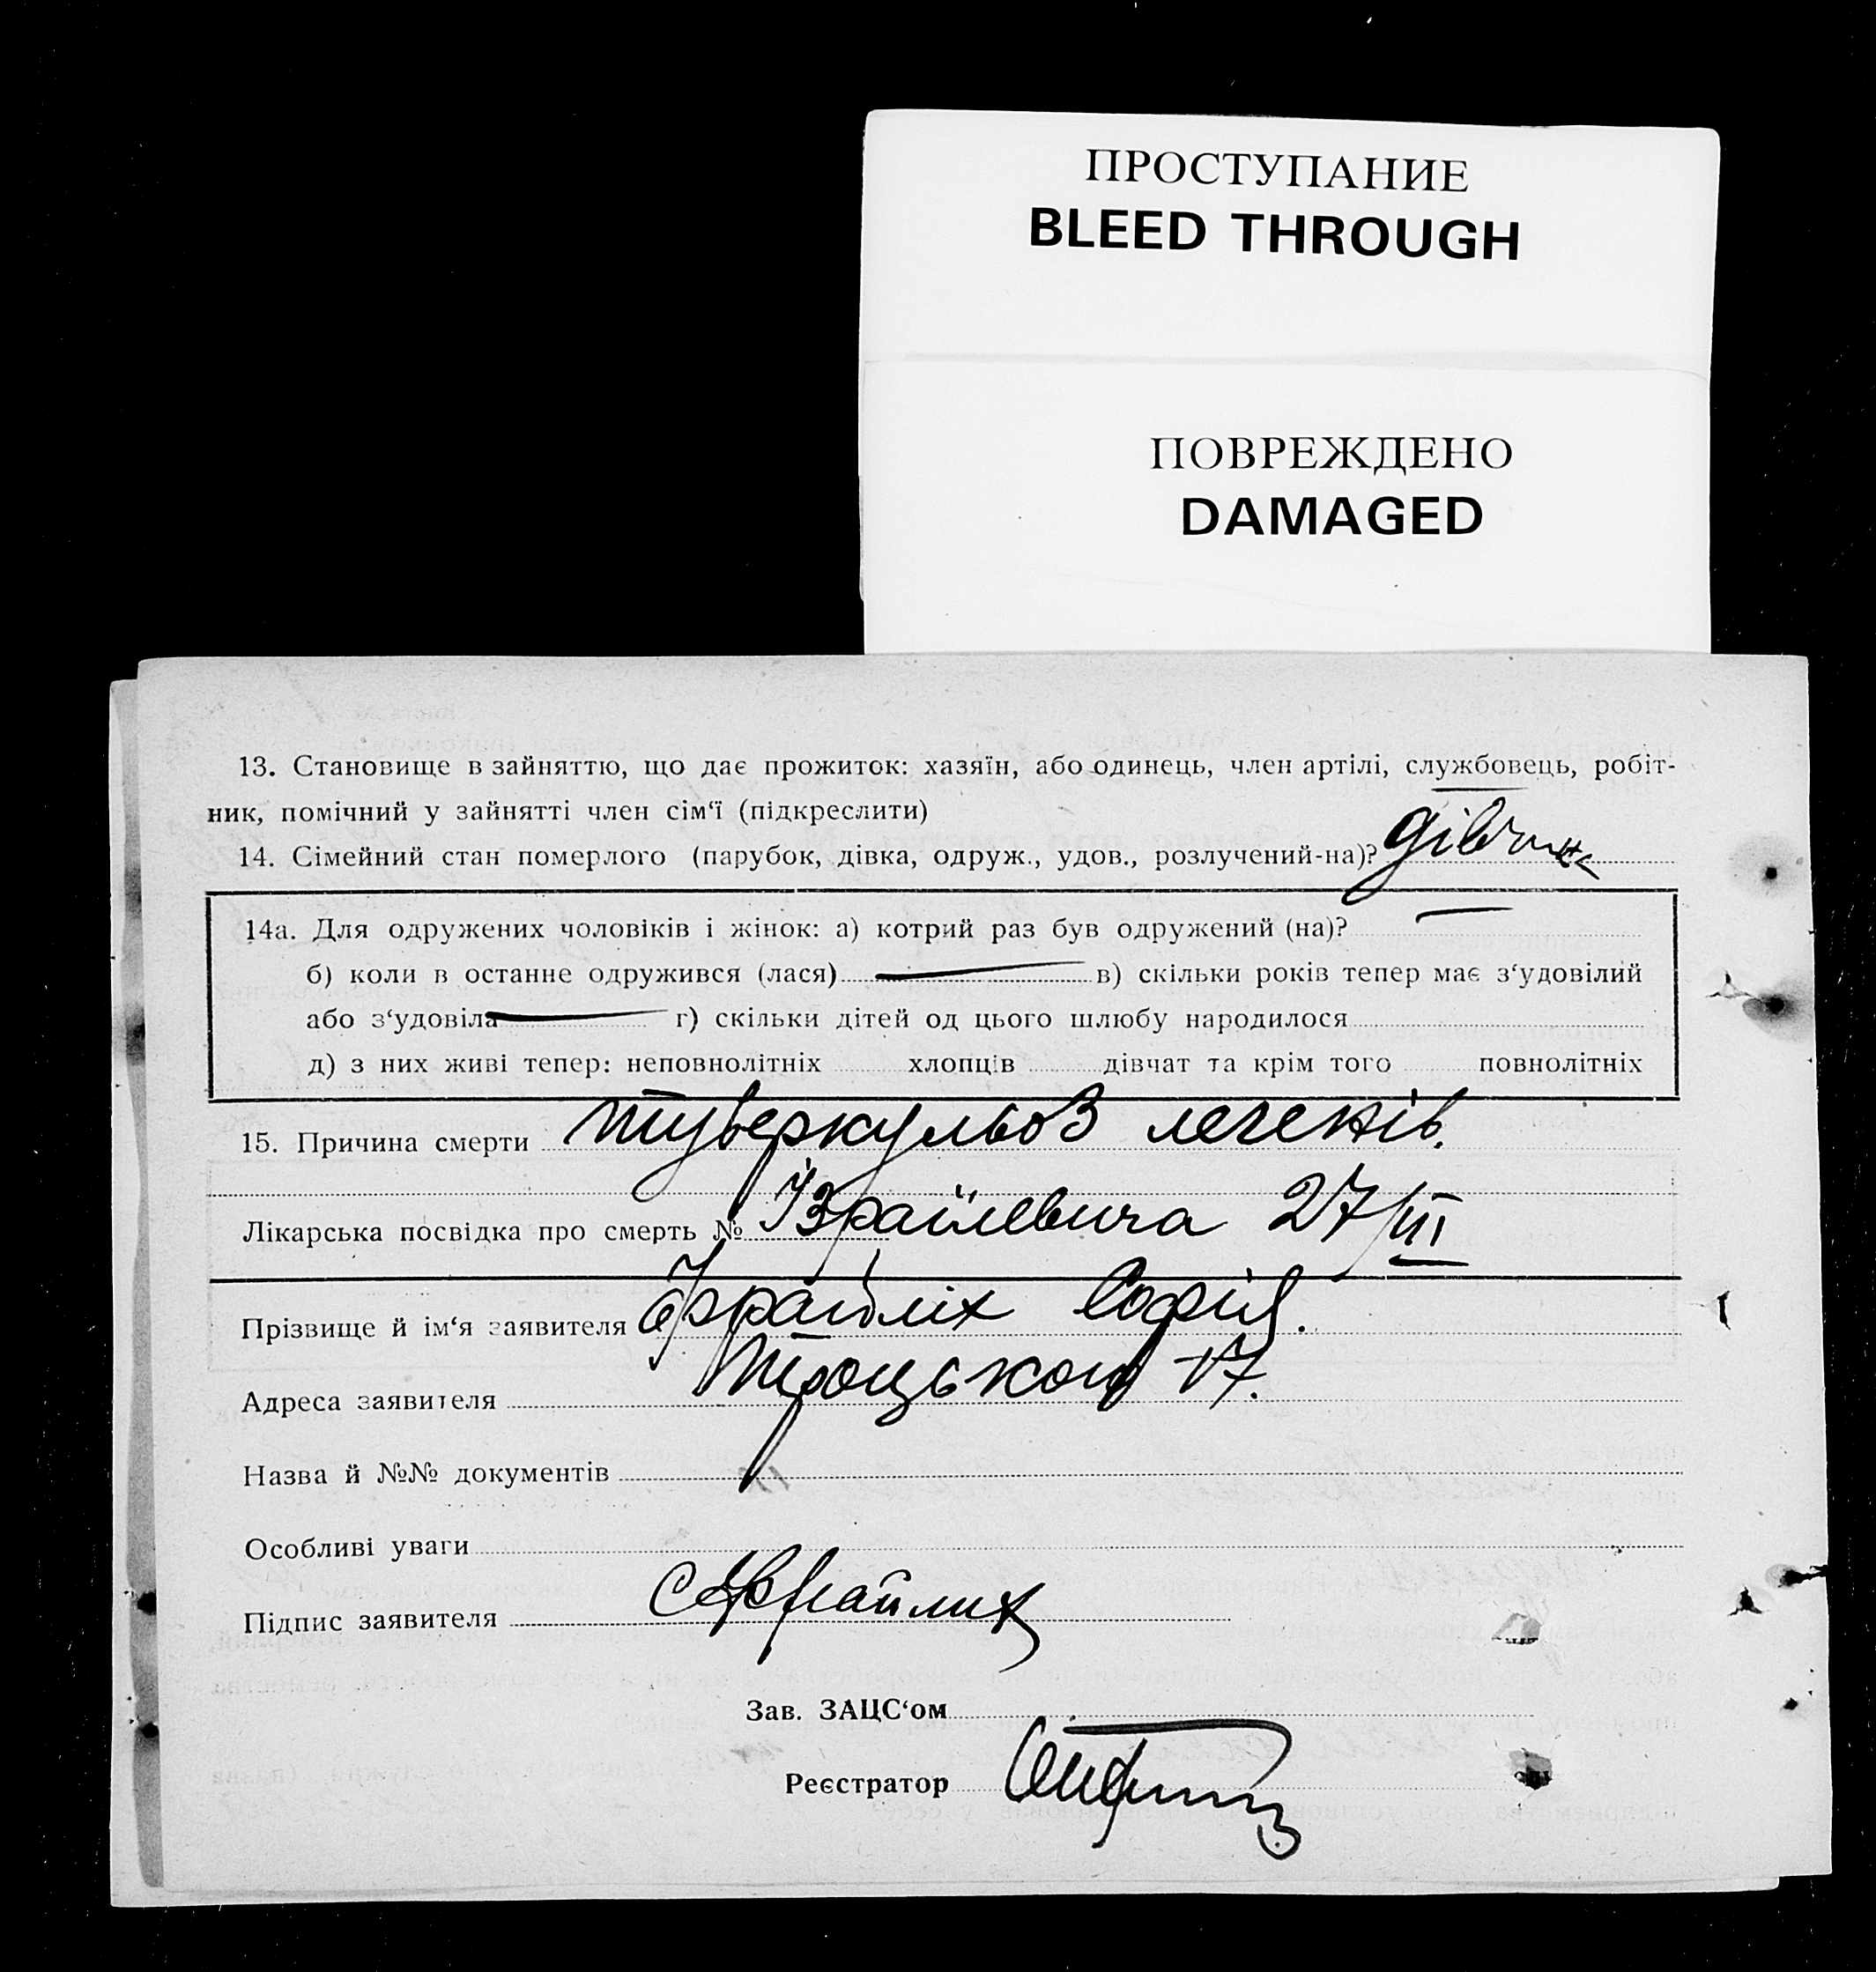 ПРОСТУПАНИЕ
BLEED THROUGH
ПОВРЕЖДЕНО
DAMAGED
13. Становище в зайняттю, що дає прожиток: хазяїн, або одинець, член артілі, службовець, робіт-
ник, помічний у зайнятті член сім‘ї (підкреслити)
14. Сімейний стан померлого (парубок, дівка, одруж., удов., розлучений-на)?
14а. Для одружених чоловіків і жінок: а) котрий раз був одружений (на)?
б) коли в останнє одружився (лася) в) скільки років тепер має з‘удовілий
або з‘удовіла г) скільки дітей од цього шлюбу народилося
д) з них живі тепер: неповнолітніх хлопців дівчат та крім того повнолітніх
15. Причина смерти туберкульоз легенів.
Лікарська посвідка про смерть № Ізраїлевича 27/III
Прізвище й ім‘я заявителя Фрайліх Софія.
Адреса заявителя Троцького 17.
Назва й №№ документів
Особливі уваги
Підпис заявителя С Фрайлих
Зав. ЗАЦС‘ом
Реєстратор